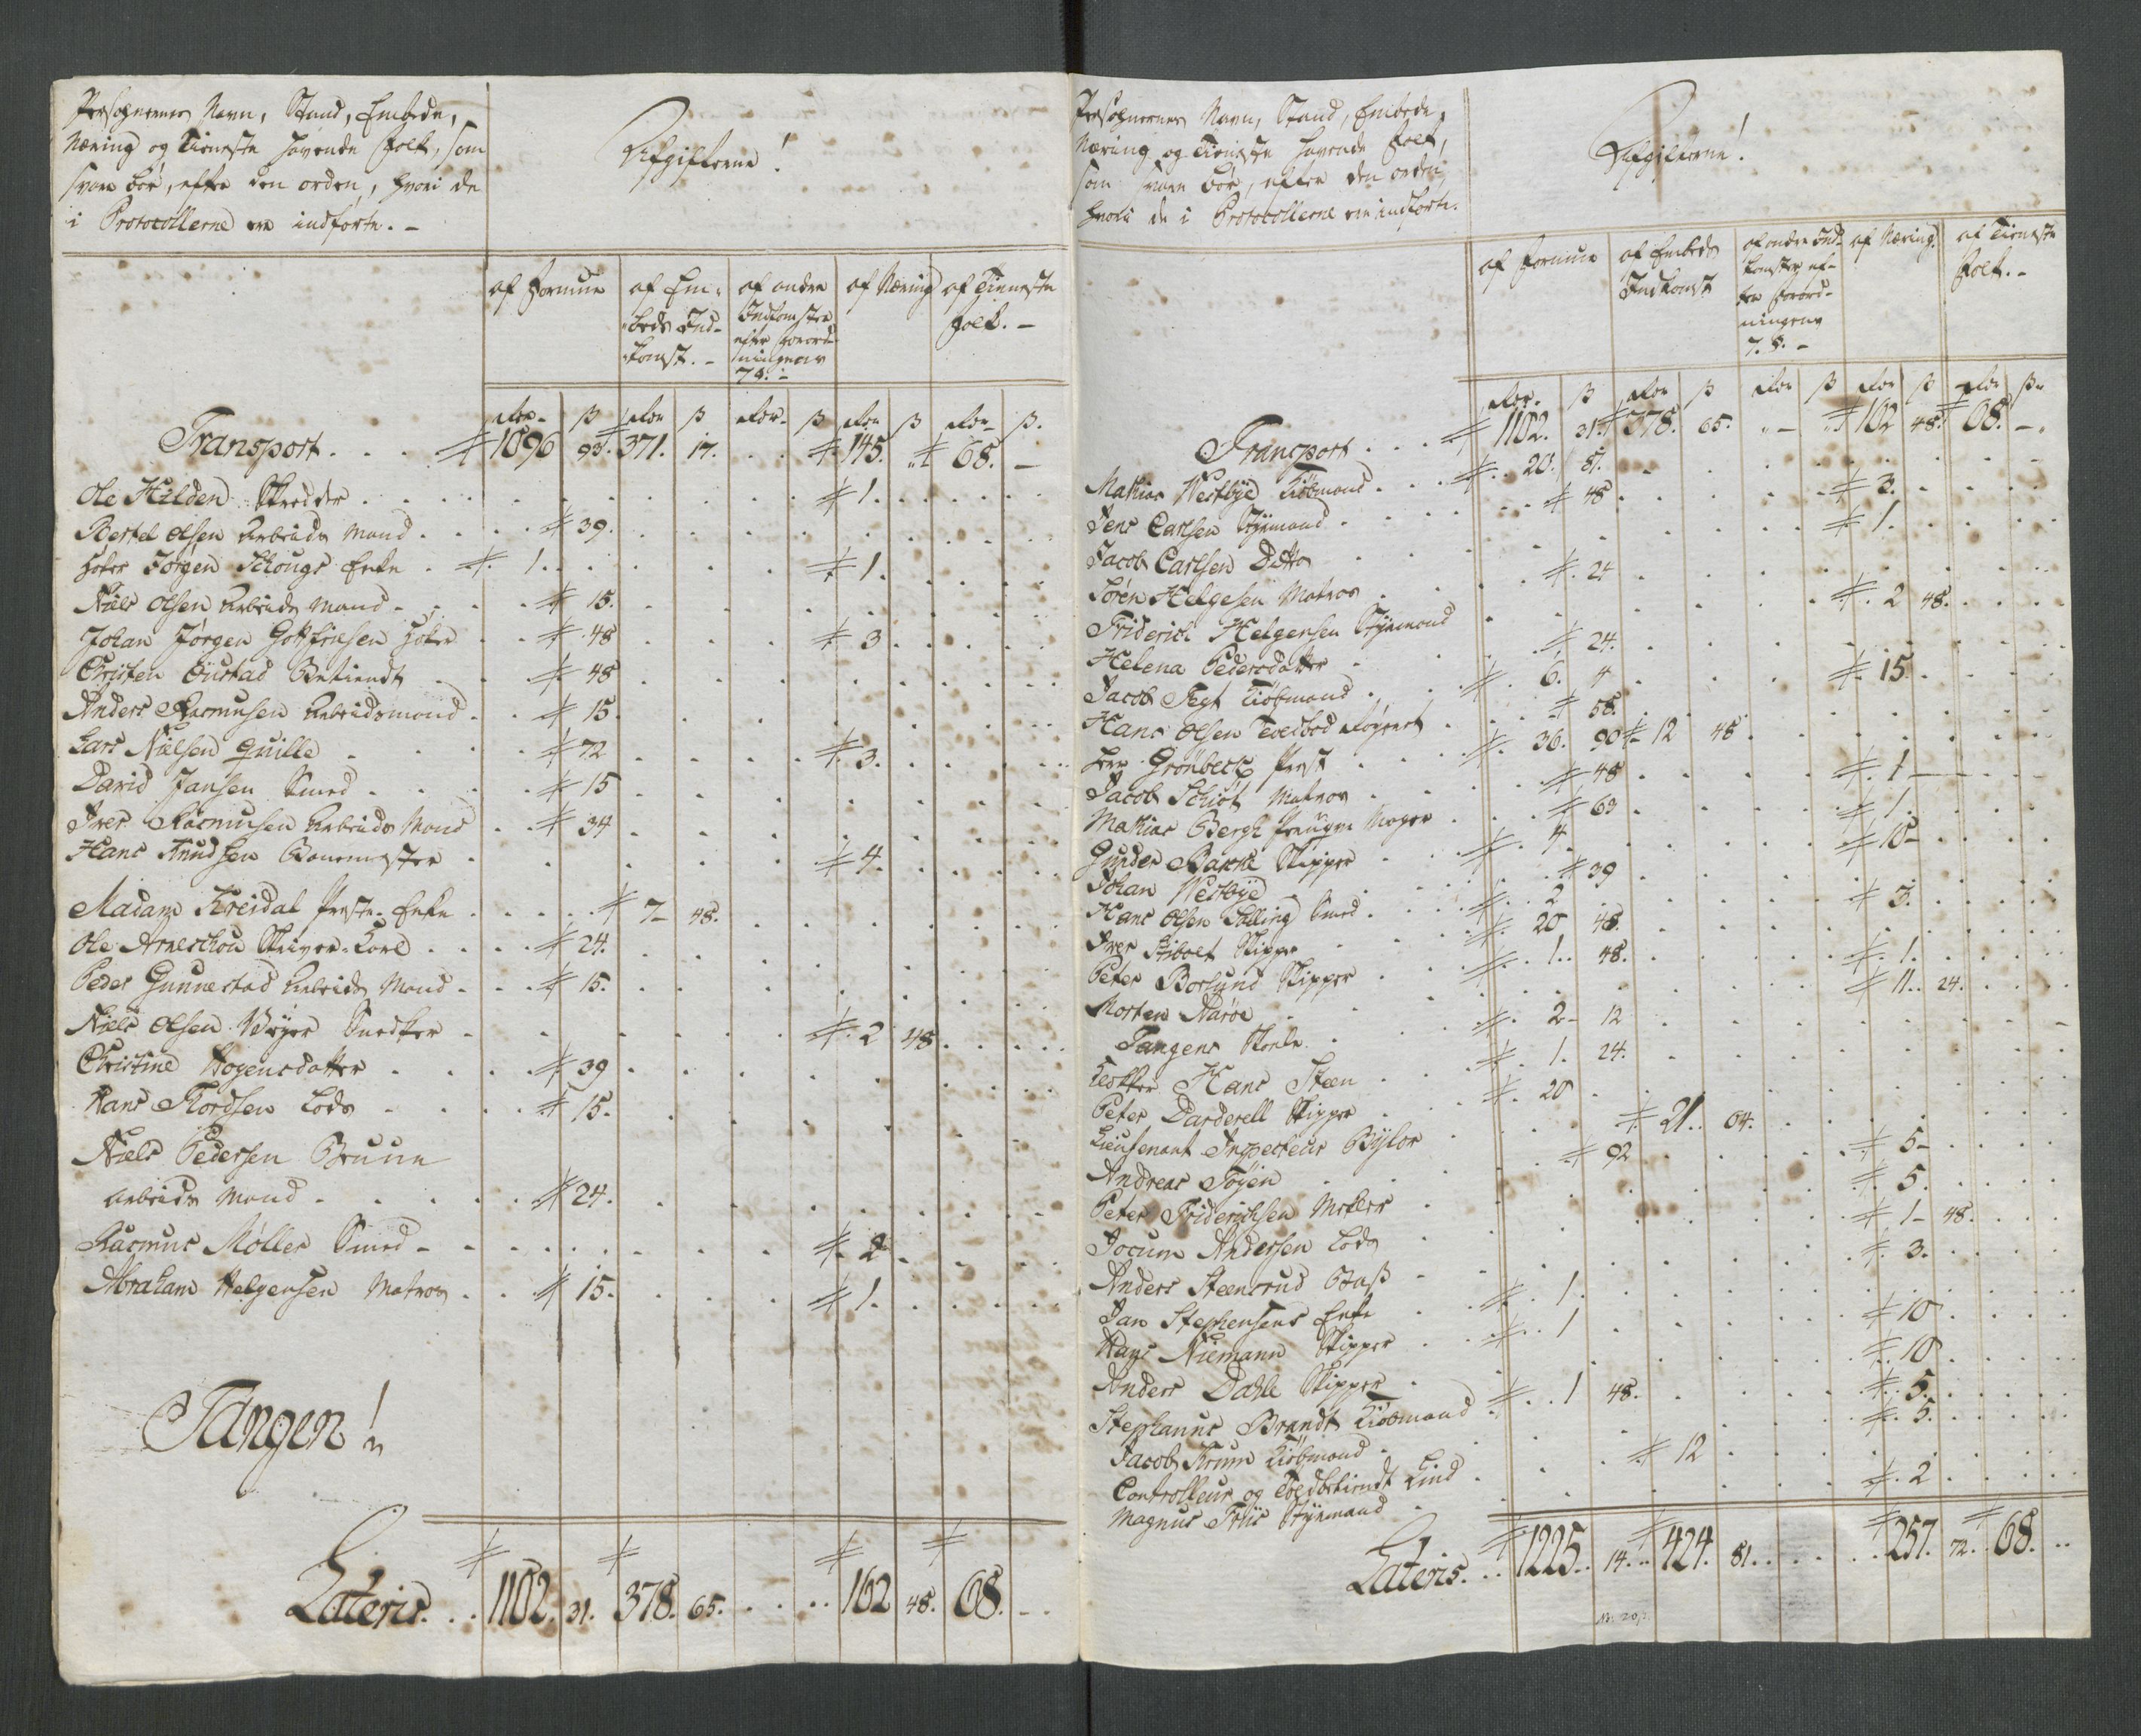 Persohnernes Navn, Stand, Embede,
Næring og Tieneste havende Folk, som
svare bør, efter den orden, hvori de
i Protocollerne ere indførte. -
Afgifterne!
af Formue
af Em-
beds Ind-
komst. -
af andre
Indkomster
efter Forord-
ningens
7 §. -
af Næring
af Tieneste
Folk. -
rdr. ß rdr ß rdr. ß rdr ß rdr. ß.
Transport. . . . 1096 93. 371. 17. . . 145. " 68. -
Ole Hilden Skredder . . . 1.
Bertel Olsen Arbeids Mand . . . 39.
Høker Jørgen Schougs Enke . 1. . . 1.
Niels Olsen Arbeids Mand . . 15.
Johan Jørgen Gottfriesen Høker . . 48 . . 3
Christen Øustad Betiendt . . 48
Anders Rasmusen Arbeidsmand . . 15.
Lars Nielsen Quille . . 72 . . 3.
David Jansen Smed . . 15
Iver Rasmusen Arbeids Mand . . 34
Hans Knudsen Bauemester . . 4.
Madam Kreidal Preste-Enke . . 7- 48.
Ole Arneschou Skriver-Karl . . 24.
Peder Gunnestad Arbeids Mand . . 15.
Niels Olsen Weyer Snedker . . 2 48
Christine Hogensdatter . . 39
Hans Thordsen Lods . . 15.
Niels Pedersen Bruun
Arbeids Mand . . 24.
Rasmus Møller Smed . . 2
Abraham Helgensen Matros . . 15. . . 1.
Tangen!
Lateris. . . 1102. 31. 378. 65. . . 162 48. 68. . .
Persohnernes Navn, Stand, Embede,
Næring og Tieneste havende Folk,
som svare bør, efter den orden,
hvori de i Protocollerne ere indførte.
Afgifterne!
af Formue
af Embeds
Indkomst
af andre Ind-
komster ef-
ter Forord-
ningens
7. §. -
af Næring.
af Tieneste
Folk. -
rdr. ß rdr ß rdr ß rdr ß rdr ß.
Transport . . . 1102. 31. 378. 65. " - 162 48. 68. - "
Mathias Westbye Kiøbmand . . 20. 87.
Jens Carlsen Styrmand . . 48 . . 2.
Jacob Carlsen Ditto . . 1.
Søren Helgesen Matros . . 24
Friderich Helgensen Styrmand . . 2 48.
Helena Pedersdatter . . 24.
Jacob Fegt Kiøbmand . . 6. 4 . . 15.
Hans Olsen Toldbod . . 58.
Herr Grønbeck Prest . . 36. 90 12 48
Jacob Schiøt Matros . . 48 . . 1 -
Mathias Bergh . . 63 . . 1.
Gunder Bache Skipper . . 4. . . 10 -
Johan Westbye . . 39
Hans Olsen Kolling Smed . . 2 . . 3.
Iver Stibolt Skipper . . 20 48.
Peter Borlund Skipper . . 1. 48. . . 1.
Morten Aarøe . . 11. 24.
Tangens Skole . . 2 - 12
Klokker Hans Steen . . 1. 24.
Peter Darderell Skipper . . 20
Lieutenant Inspecteur Bylor . . 21. 64.
Andreas Føyen . . 92 . . 5 -
Peter Friderichsen Mekler . . 5.
Jocum Andersen Lods . . 1 - 48.
Anders Steensrud . . 3.
Jan Stephensens Enke . . 1.
Hays Niemann Skipper . . 1 . . 10
Anders Dahle Skipper . . 10
Stephanus Brandt Kiøbmand . . 1 48. . . 5.
Jacob Krum Kiøbmand . . 5.
Controlleur og Toldbetiendt Lind . . 12
Magnus Friis Styrmand . . 2
Lateris. . . 1225. 14. 424. 81. . . . 257. 72. 68. . .